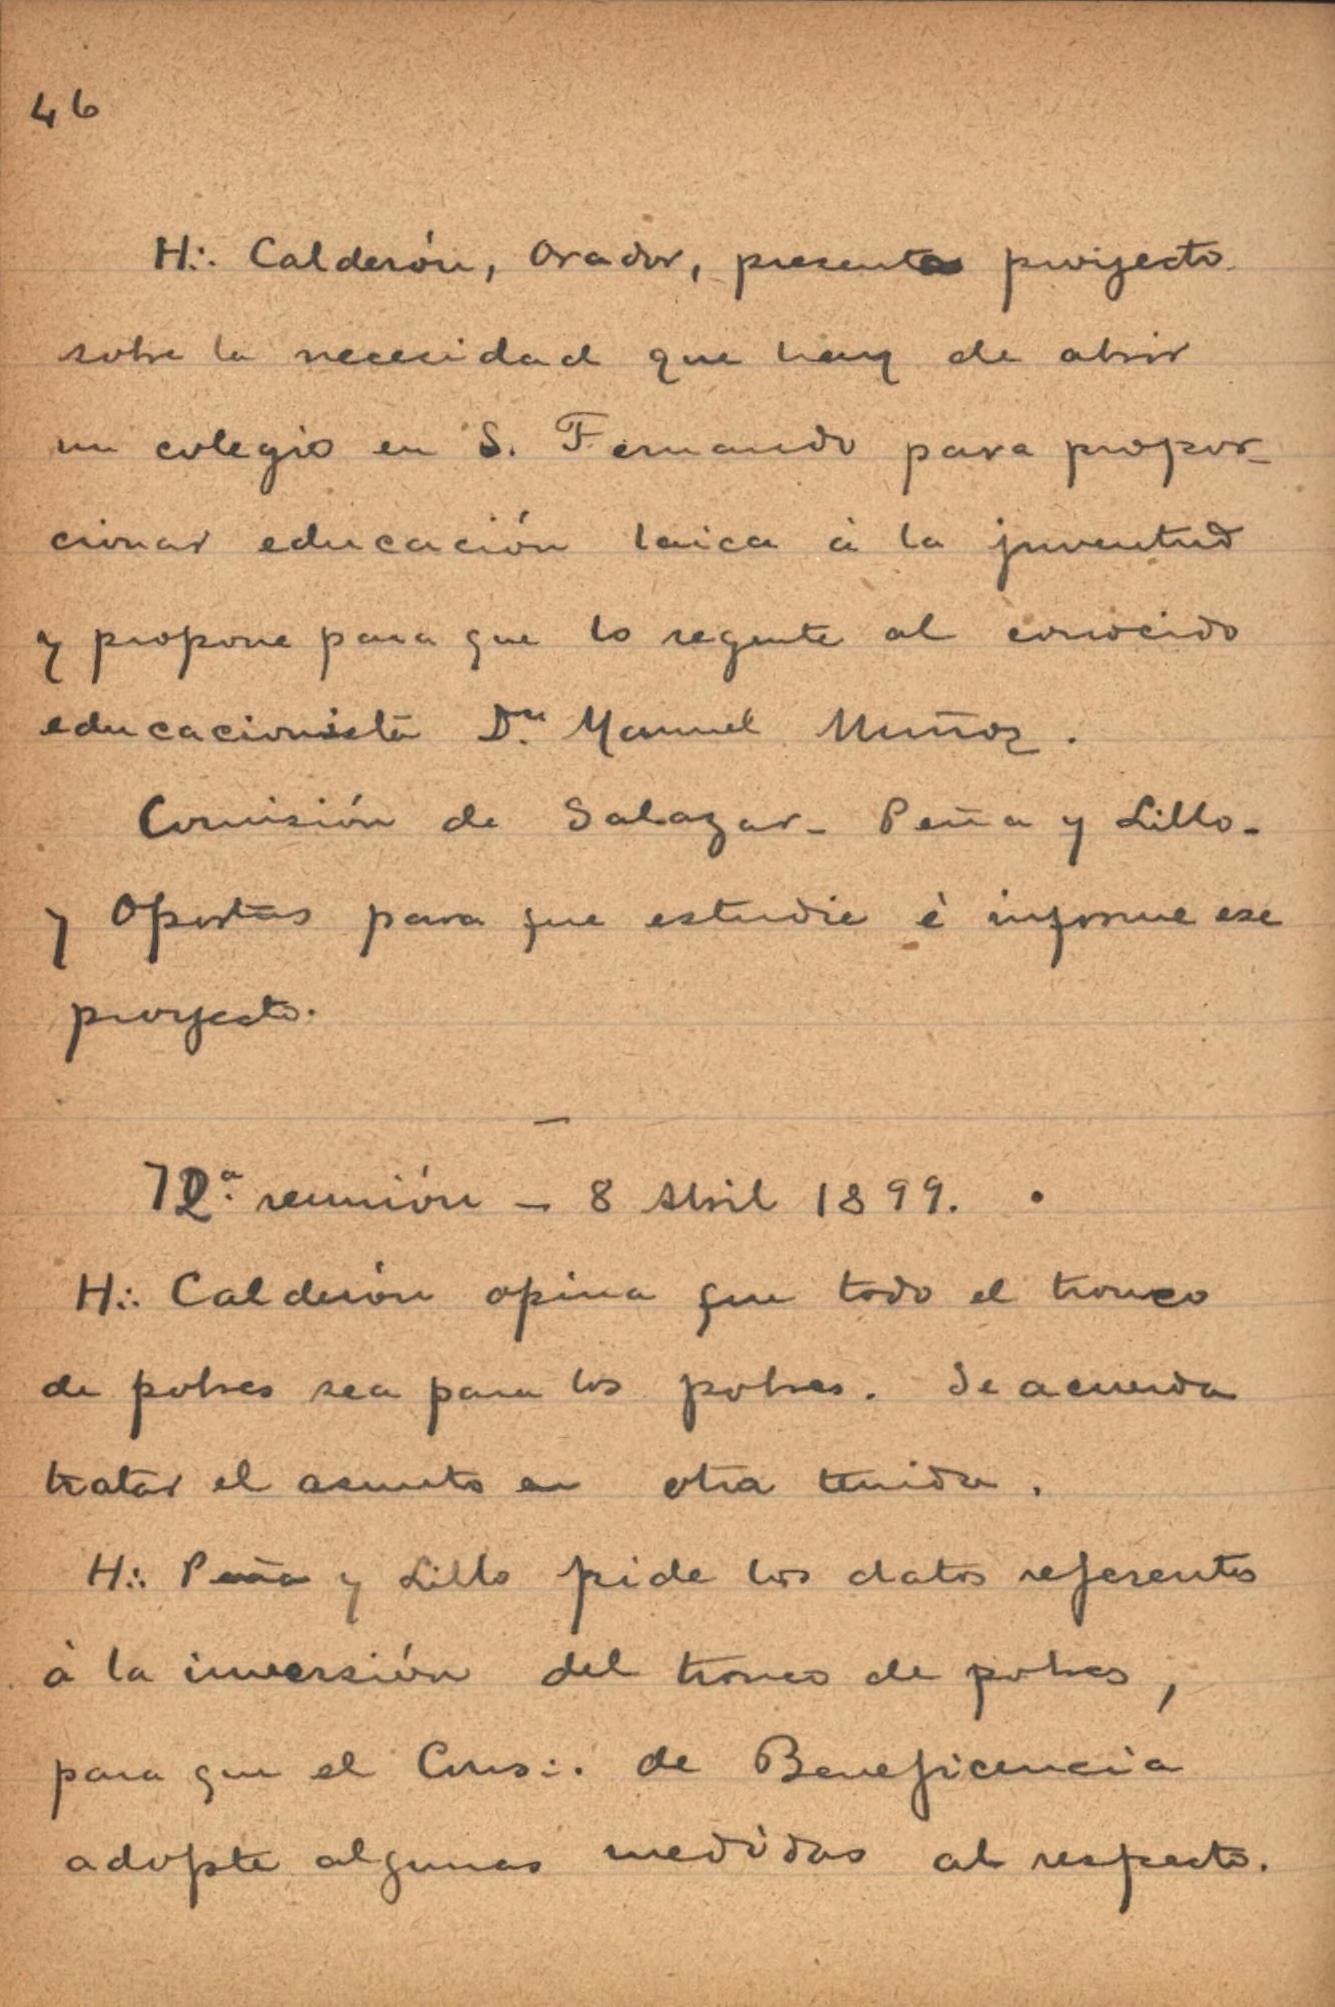 46
H∴ Calderón, Orador, presenta proyecto
sobre la necesidad que hay de abrir
un colegio en S. Fernando para propor-
cionar educación laica à la juventud
y propone para que lo regente al conocido
educacionista Dn. Manuel Muñoz.
Comisión de Salazar - Peña y Lillo -
y Oportus para que estudie è informe ese
proyecto.
—
72ª reunión - 8 Abril 1899.
H∴ Calderón opina que todo el tronco
de pobres sea para los pobres. Se acuerda
tratar el asunto en otra tenida.
H∴ Peña y Lillo pide los datos referentes
à la inversión del tronco de pobres,
para que el Cons∴ de Beneficencia
adopte algunas medidas al respecto.